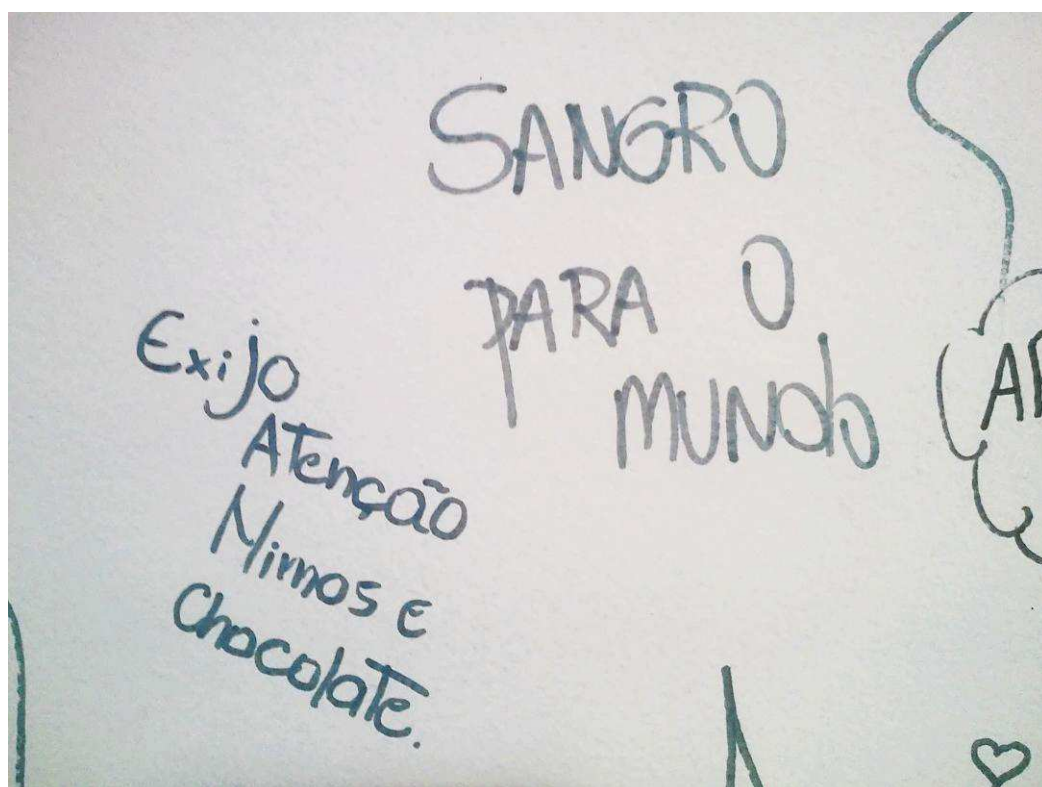 SANGRO
PARA O
MUNDO
Exijo
Atenção
Mimos e
Chocolate.